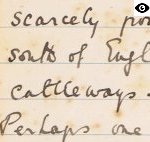 scarcely
south of
cattleways.
Perhaps one